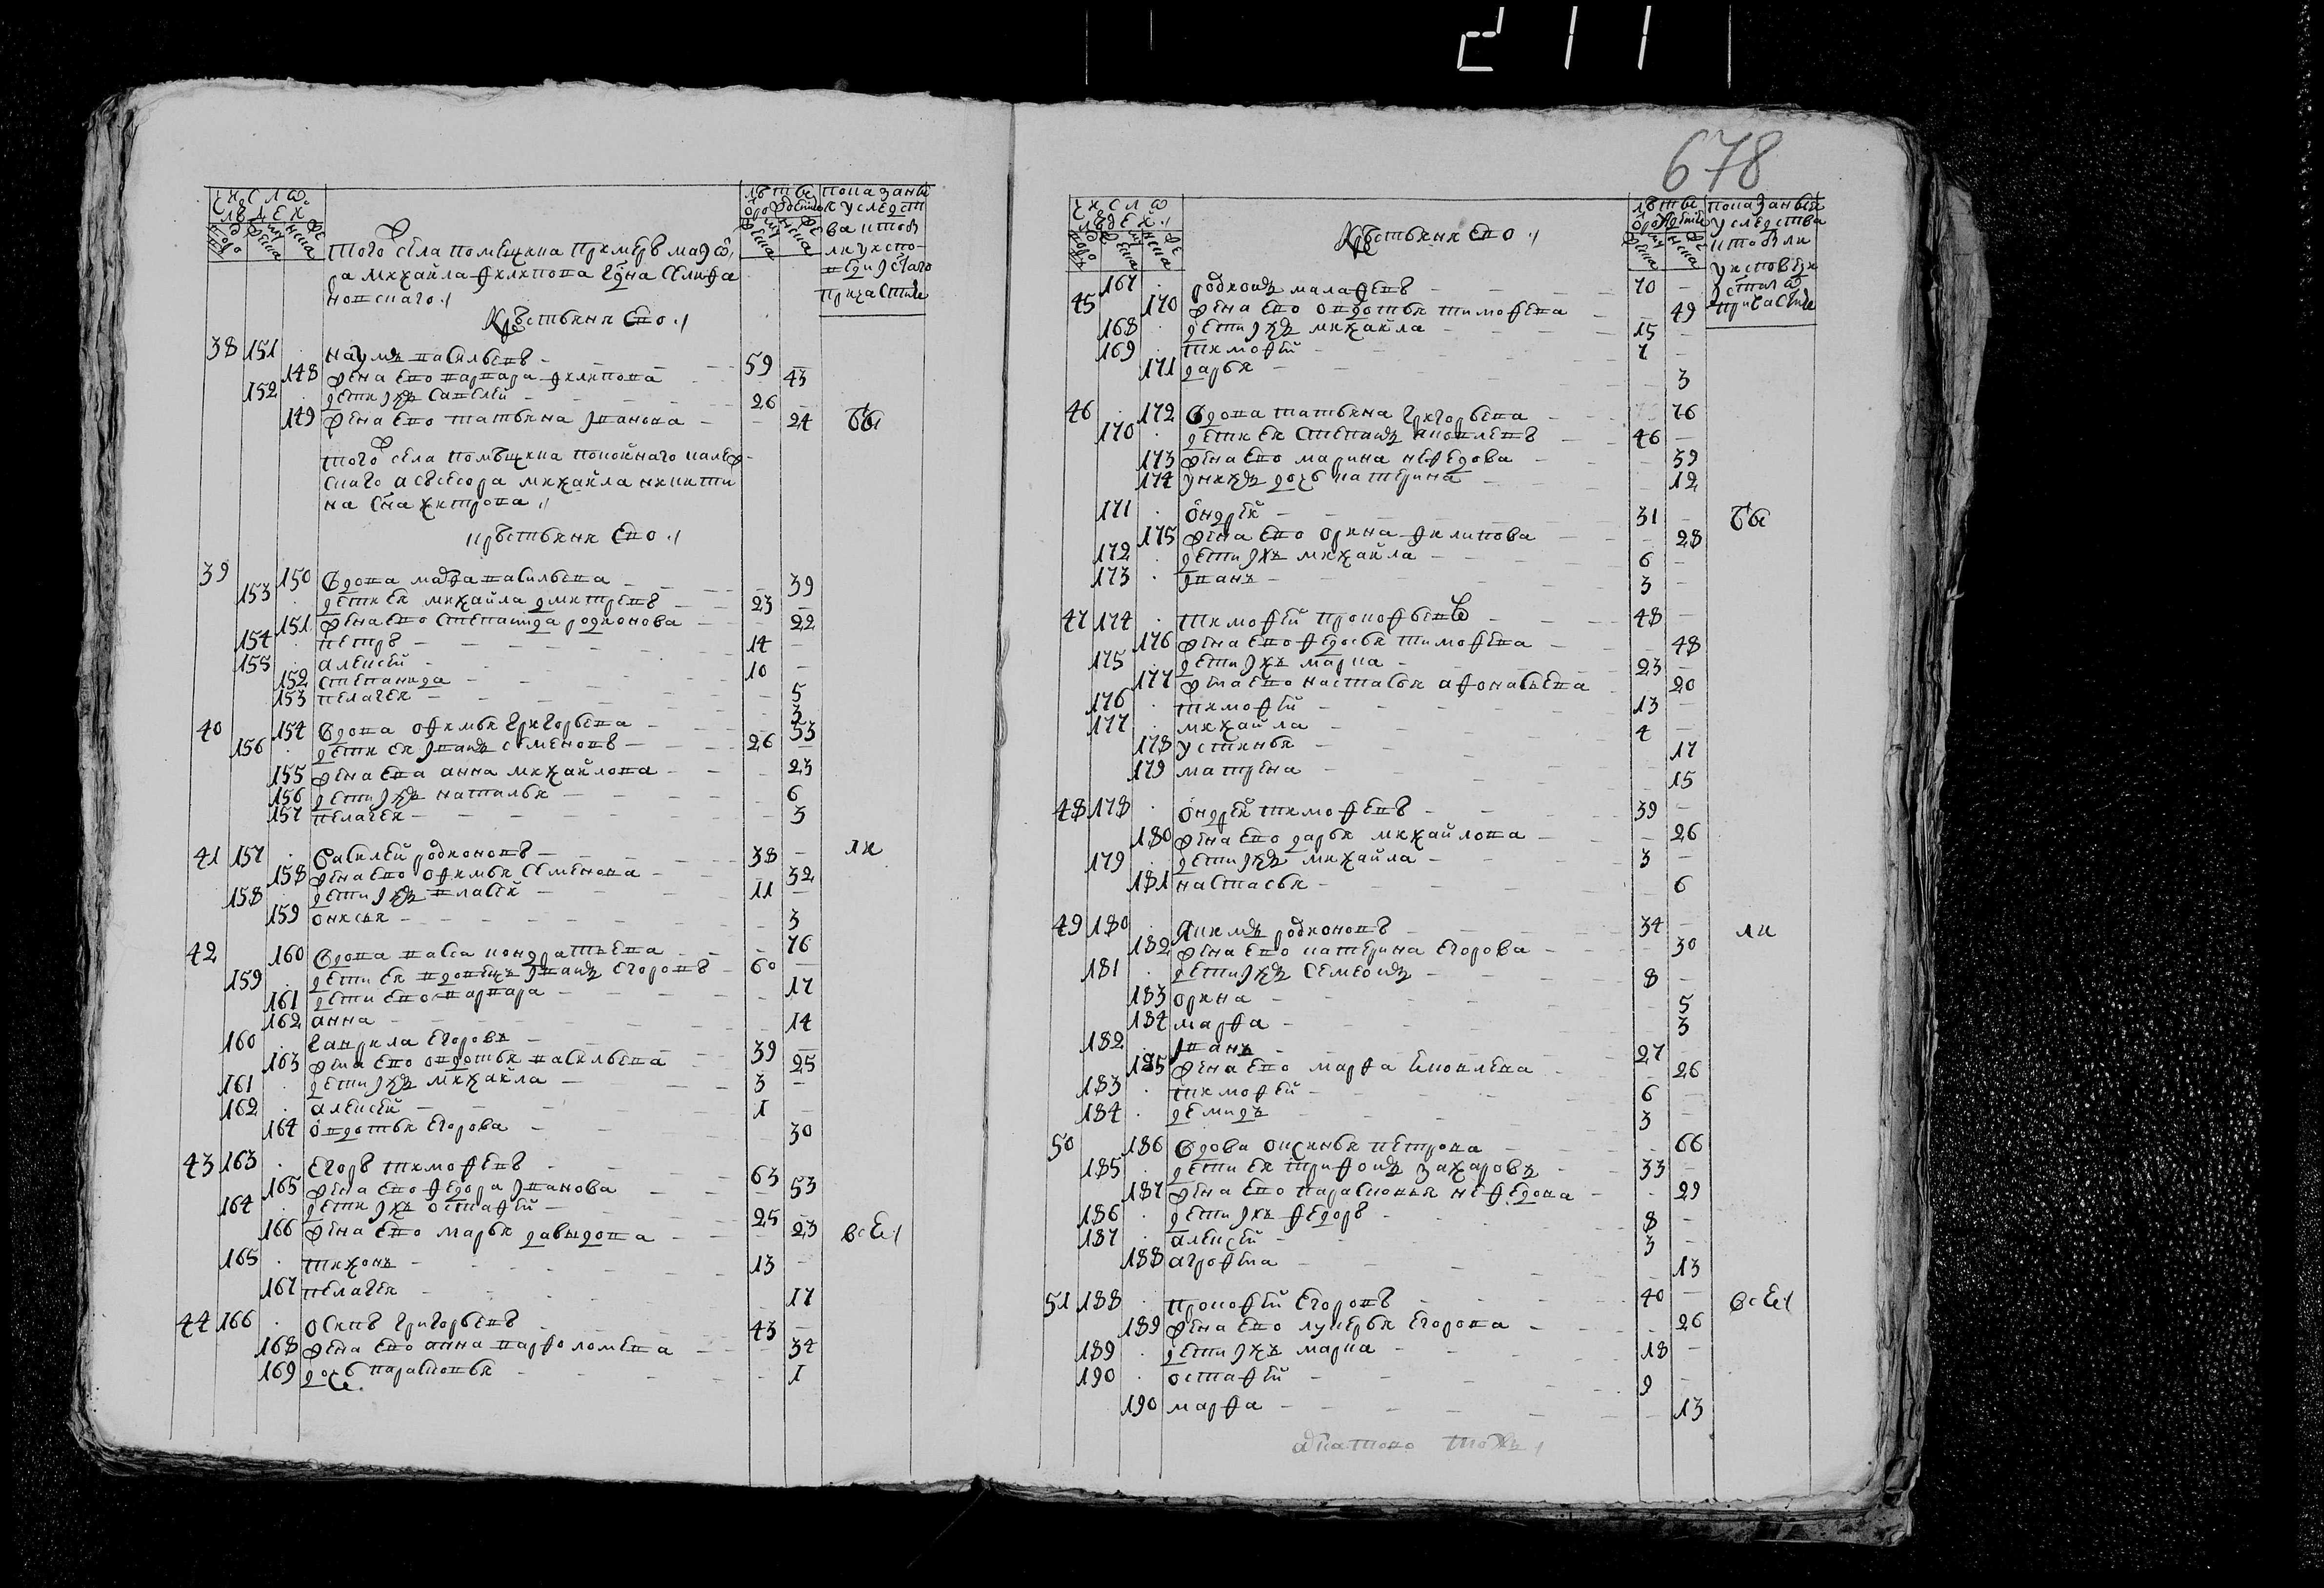 211
678
число
людей
дворо
мужеска
женска
того села помещика премер маэо
ра михайла филипова сына селифа
новскаго
крестьяне ево
лѣта
от рождения
мужеска
женска
38 151 наумъ васильевъ 59
148 жена ево варвара филипова 43
152 дети ихъ савелей 26
149 жена ево татьяна иванова 24 бы
того села помѣщика покойнаго калеж
скаго асесора михайла никити
на сна хитрова
крестьяне ево
39 150 вдова марфа васильева 39
153 дети ея михайла дмитревъ 23
151 жена ево степанида родионова 22
154 петръ 14
155 алексей 10
152 степанида 5
153 пелагея 3
40 154 вдова офимья григорьева 53
156 дети ея иванъ семеновъ 26
155 жена ева анна михайлова 23
156 дети ихъ наталья 6
157 пелагея 3
41 157 василей родионовъ 38 ли
158 жена ево офимья семенова 32
158 дети ихъ власей 11
159 онисья 3
42 160 вдова васа кондратьева 76
159 дети ея вдовецъ иванъ егоровъ 60
161 дети ево варвара 17
162 анна 14
160 гаврила егоровъ 39
163 жена ево овдотья васильева 25
161 дети ихъ михайла 3
162 алексей 1
164 овдотья егорова 30
43 163 егоръ тимофевъ 63
165 жена ево федора иванова 53
164 дети ихъ остафей 25
166 жена ево марья давыдова 23 все
165 тихонъ 13
167 пелагея 17
44 166 осипъ григорьевъ 43
168 жена ево анна варфоломева 34
169 дочь парасковья 1
число
людей
дворо
мужеска
женска
крестьяне ево
лѣта
от рождения
мужеска
женска
45 167 родионъ малафевъ 70
170 жена ево овдотья тимофева 49
168 дети ихъ михайла 15
169 тимофей 7
171 дарья 3
46 172 вдова татьяна григорьева 76
170 дети ея степанъ яковлевъ 46
173 жена ево марина нефедова 39
174 у нихъ дочь катерина 12
171 ондрей 31 бы
175 жена ево орина филипова 28
172 дети ихъ михайла 6
173 иванъ 3
47 174 тимофей прокофьевъ 48
176 жена ево федосья тимофева 48
175 дети ихъ марка 23
177 жена ево настасья афонасьева 20
176 тимофей 13
177 михайла 4
178 устинья 17
179 матрена 15
48 178 ондрей тимофевъ 39
180 жена ево дарья михайлова 26
179 дети ихъ михайла 3
181 настасья 6
49 180 якимъ родионовъ 34 ли
182 жена ево катерина егорова 30
181 дети ихъ семеонъ 8
183 орина 5
184 марфа 3
182 иванъ 27
185 жена ево марфа яковлева 26
183 тимофей 6
184 демидъ 3
50 186 вдова оксинья петрова 66
185 дети ея трифонъ захаровъ 33
187 жена ево парасковья нефедова 29
186 дети ихъ федоръ 8
187 алексей 3
188 агрофена 13
51 188 прокофей егоровъ 40 все
189 жена ево лукерья егорова 26
189 дети ихъ марка 18
190 остафей 9
190 марфа 13